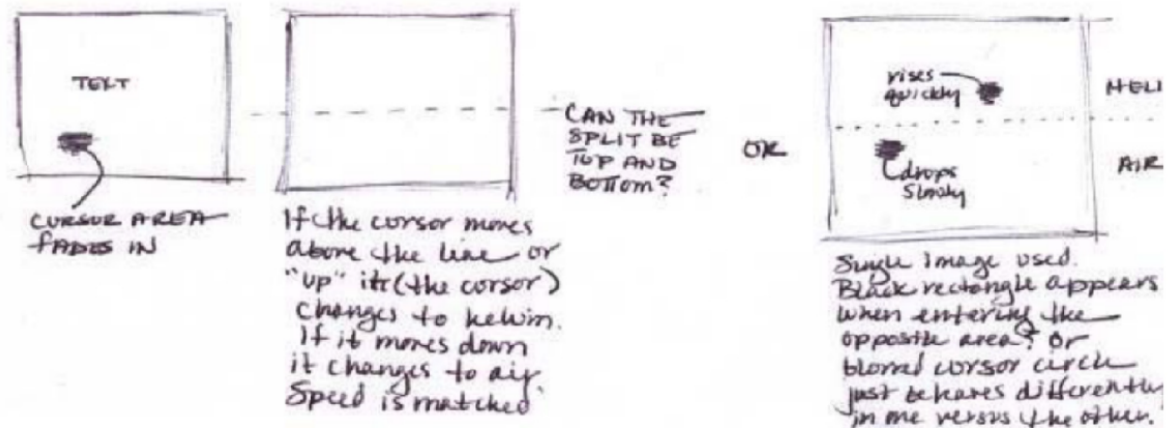 TEXT
CURSOR AREA
FADES IN
If the cursor moves
above the line or
"up" it (the cursor)
changes to helium.
If it moves down
it changes to air.
Speed is matched
CAN THE
SPLIT BE
TOP AND
BOTTOM?
OR
rises
quickly
drops
slowly
HELI
AIR
Single image used.
Black rectangle appears
when entering the
opposite area? or
blurred cursor circle
just behaves differently
in one versus the other.